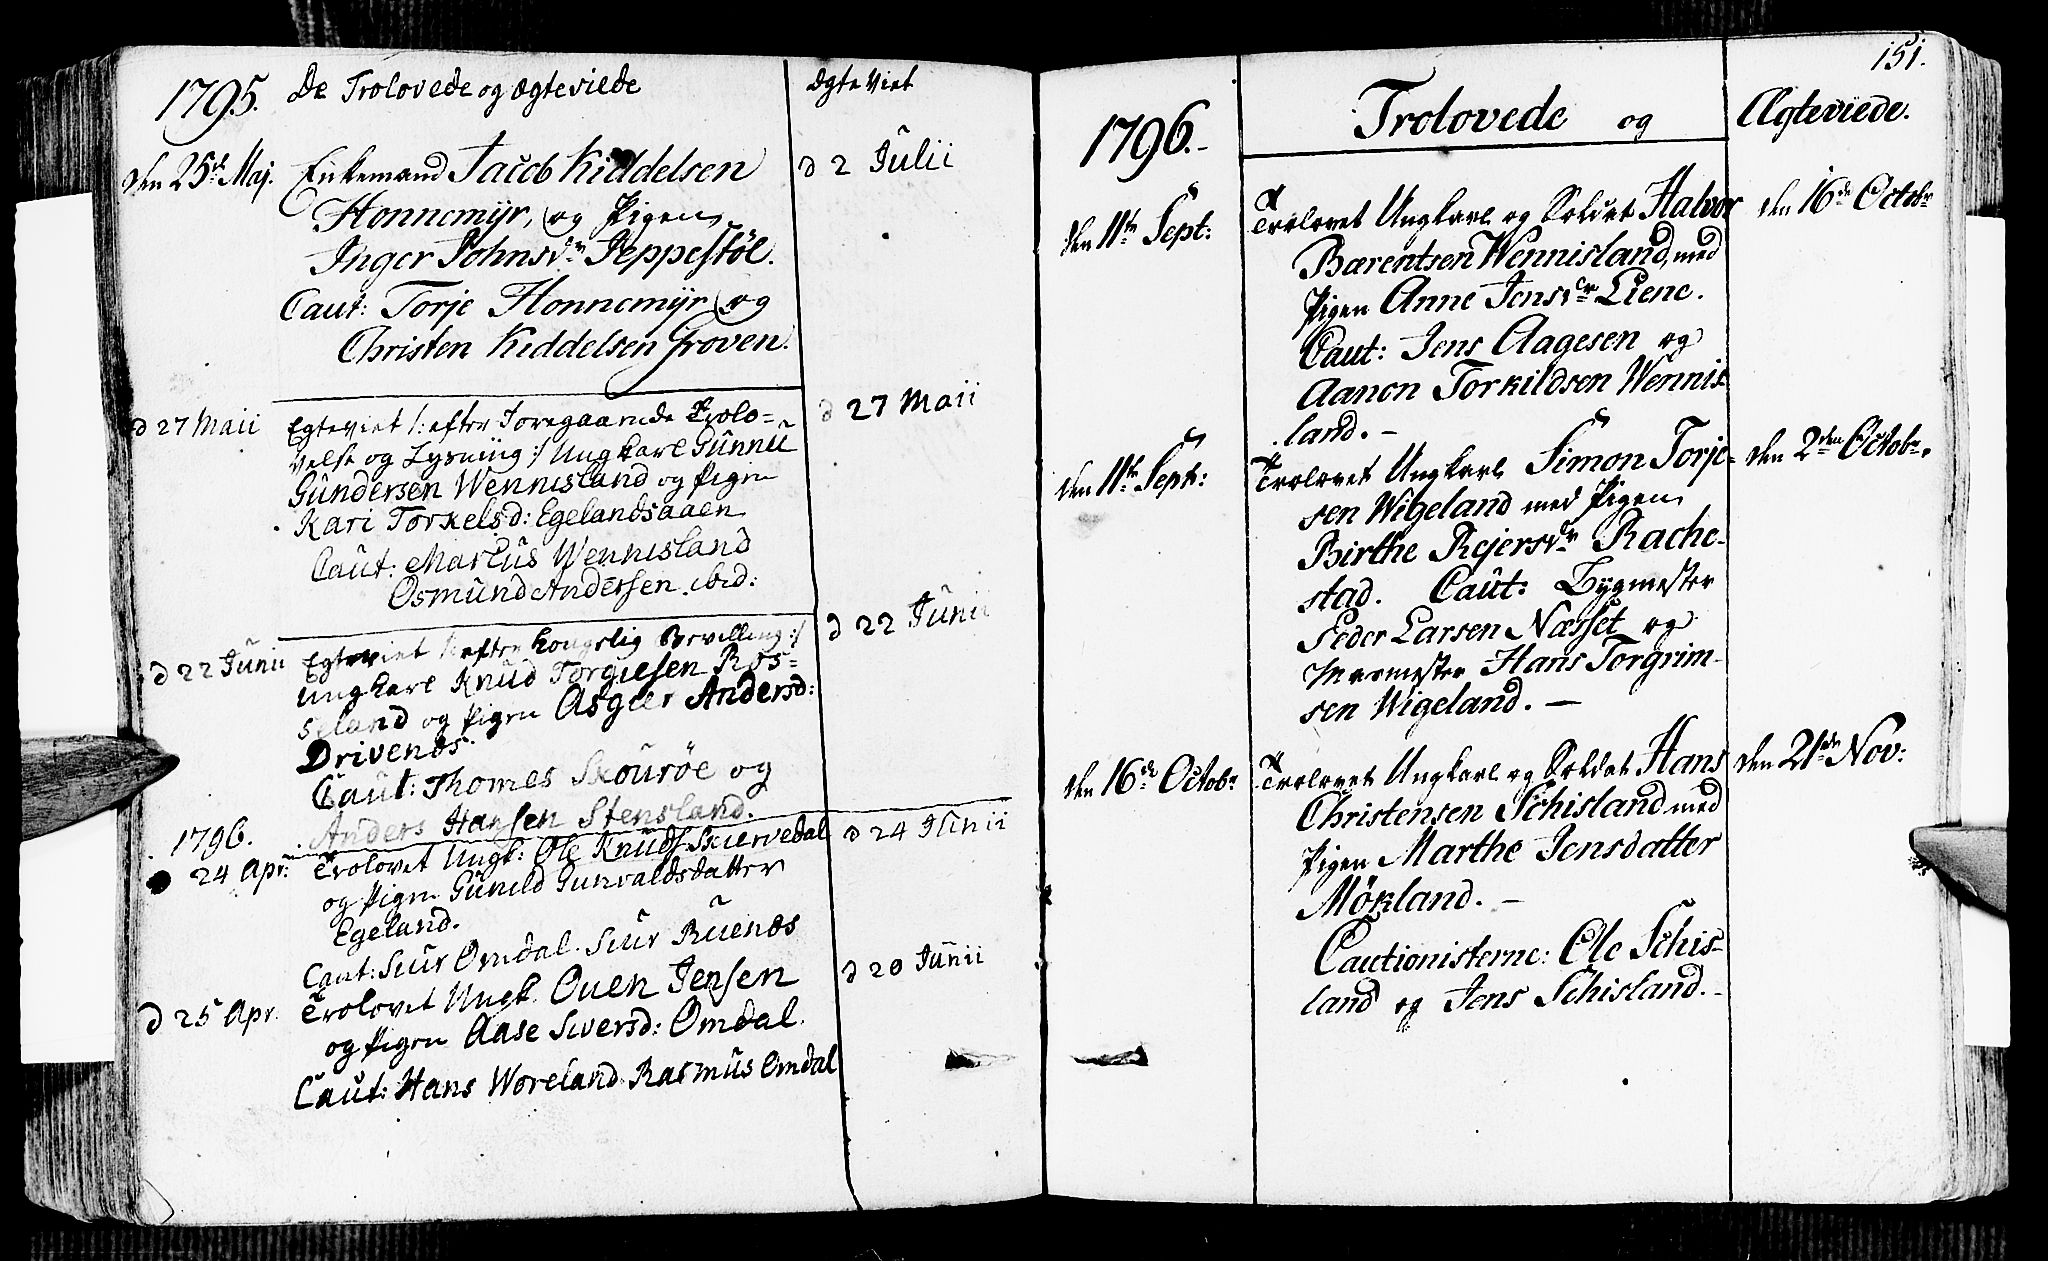 1795. De Trolovede og Ægteviede Ægteviet
den 25de Maj. Enkemand Jacob Kiddelsen d 2 Julii
Honnemÿr, og Pigen
Inger Johnsdr Peppestöl.
Caut: Torje Honnemÿr og
Christen Kiddelsen Groven.
d 27 Maii Egteviet /: efter Foregaaende Trolo= d 27 Maii
velse og Lysning :/ Ungkarl Gunnu
Gundersen Wennisland og Pigen
Kari Torkelsd: Egelandsaaen
Caut: Marcus Wennisland
Osmund Andersen ibid:
d 22 Junii Egteviet /: efter Kongelig Bevilling :/ d 22 Junii
Ungkarl Knud Torgiesen Ros=
seland og Pigen Asgier Andersd:
Drivenæs.
Caut: Thomes Skouröe og
Anders Hansen Stensland.
1796.
24 Apr: Trolovet Ungk: Ole Knuds. Skiervedal d 24 Junii
og Pigen Gunild Gunvaldsdatter
Egeland.
Caut: Siur Omdal. Siur Ruenæs
d 25 Apr. Trolovet Ungk. Ouen Jensen d 20 Junii
og Pigen Aase Siversd: Omdal.
Caut: Hans Woreland Rasmus Omdal
151.
1796. Trolovede og Ægteviede.
den 11te Sept: Trolovet Ungkarl og Soldat Halvor den 16de Octobr
Bærentsen Wennisland, med
Pigen Anne Jensdr Liene.
Caut: Jens Aagesen og
Aanon Torkildsen Wennis-
land. -
den 11te Sept: Trolovet Ungkarl Simon Torje- den 2den Octobr.
sen Wigeland med Pigen
Birthe Rejersdr Rache-
stad. Caut: Bygmester
Peder Larsen Næsset og
Murmester Hans Torgrim-
sen Wigeland. -
den 16de Octobr Trolovet Ungkarl og Soldat Hans den 21de Nov:
Christensen Schisland med
Pigen Marthe Jensdatter
Mökland. -
Cautionisterne: Ole Schis-
land og Jens Schisland. -